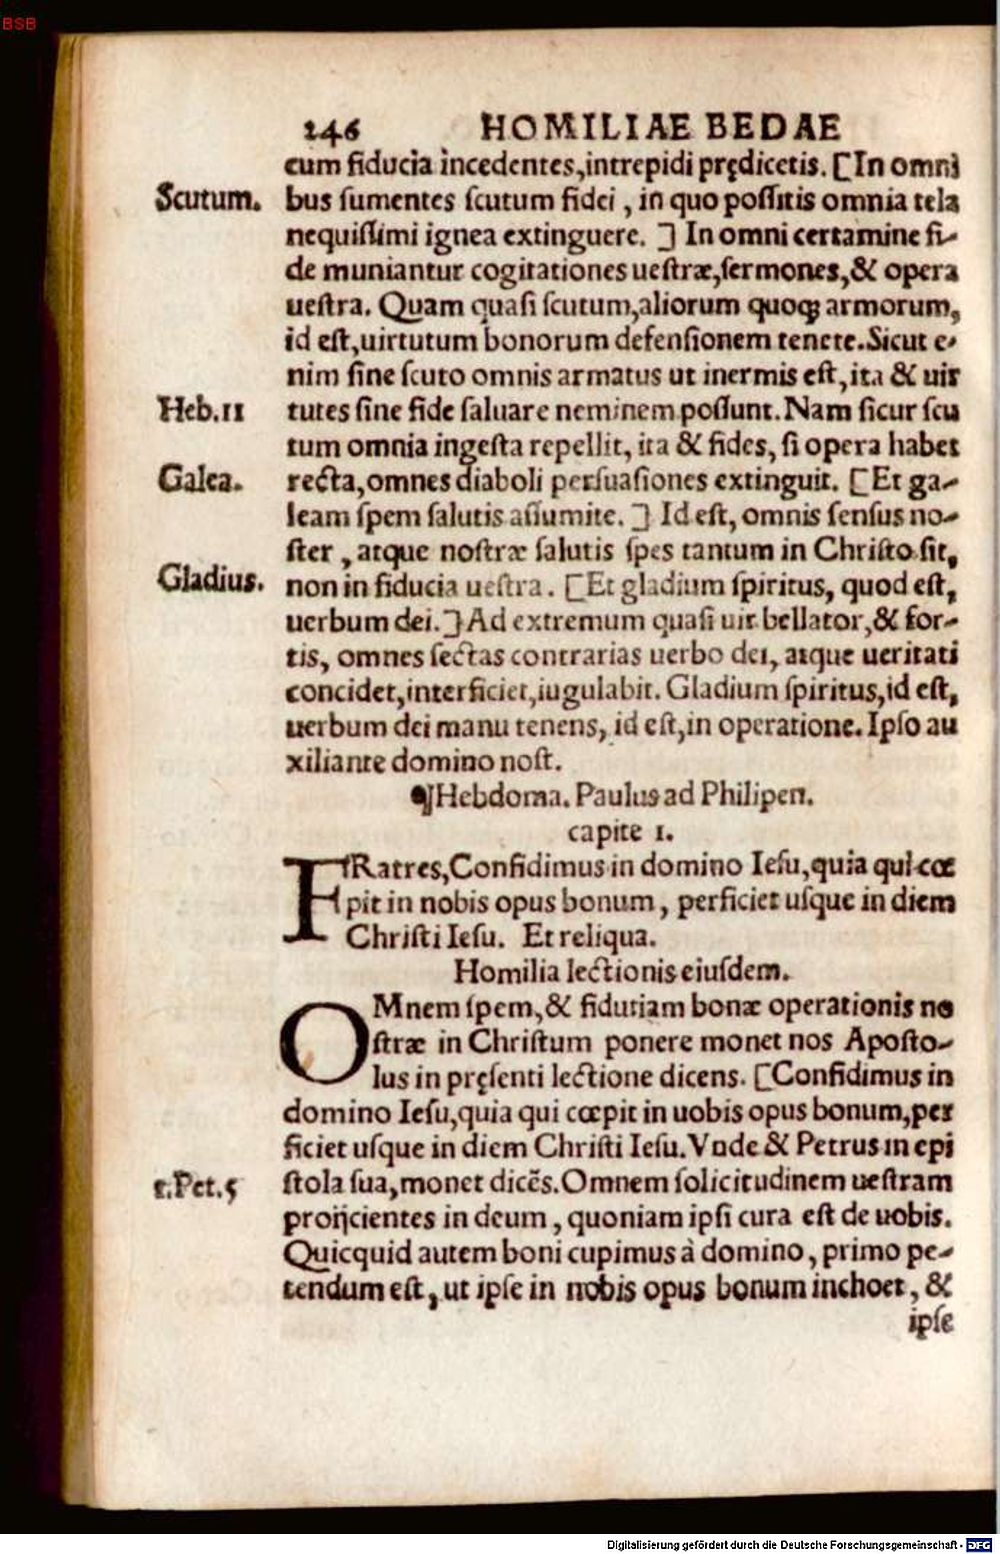 BSB
246 HOMILIAE BEDAE
cum fiducia incedentes,intrepidi prędicetis. [In omni
Scutum. bus ſumentes ſcutum fidei , in quo poſſitis omnia tela
nequiſſimi ignea extinguere. ] In omni certamine fi-
de muniantur cogitationes ueſtræ,ſermones,& opera
ueſtra. Quam quaſi ſcutum,aliorum quoqꝫ armorum,
id eſt,uirtutum bonorum defenſionem tenete.Sicut e-
nim ſine ſcuto omnis armatus ut inermis eſt,ita & uir
Heb.11 tutes ſine fide ſaluare neminem poſſunt.Nam ſicut ſcu
tum omnia ingeſta repellit, ita & fides, ſi opera habet
Galea. recta,omnes diaboli perſuaſiones extinguit. [Et ga-
leam ſpem ſalutis aſſumite. ] Id eſt, omnis ſenſus no-
ſter , atque noſtræ ſalutis ſpes tantum in Chriſto ſit,
Gladius. non in fiducia ueſtra. [Et gladium ſpiritus, quod eſt,
uerbum dei.] Ad extremum quaſi uir bellator,& for-
tis, omnes ſectas contrarias uerbo dei, atque ueritati
concidet,interficiet,iugulabit. Gladium ſpiritus,id eſt,
uerbum dei manu tenens, id eſt,in operatione. Ipſo au
xiliante domino noſt.
¶Hebdoma. Paulus ad Philipen.
capite 1.
FRatres,Confidimus in domino Ieſu,quia qui cœ
pit in nobis opus bonum, perficiet uſque in diem
Chriſti Ieſu. Et reliqua.
Homilia lectionis eiuſdem.
OMnem ſpem,& fidutiam bonæ operationis no
ſtræ in Chriſtum ponere monet nos Apoſto-
lus in pręſenti lectione dicens. [Confidimus in
domino Ieſu,quia qui cœpit in uobis opus bonum,per
ficiet uſque in diem Chriſti Ieſu.Vnde & Petrus in epi
1.Pet.5 ſtola ſua,monet dicẽs.Omnem ſolicitudinem ueſtram
proijcientes in deum , quoniam ipſi cura eſt de uobis.
Quicquid autem boni cupimus à domino, primo pe-
tendum eſt, ut ipſe in nobis opus bonum inchoet, &
ipſe
Digitalisierung gefördert durch die Deutsche Forschungsgemeinschaft - DFG